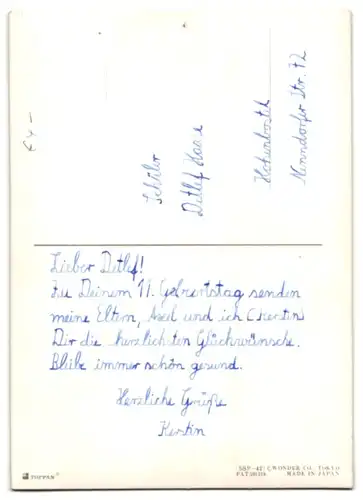 € 4,-
Schüler
Detlef Haase
Hohenbostel
Nenndorfer Str. 72
Lieber Detlef!
Zu Deinem 11. Geburtstag senden
meine Eltern, Axel und ich (Kerstin)
Dir die herzlichsten Glückwünsche.
Bleibe immer schön gesund.
Herzliche Grüße
Kerstin
TOPPAN
WONDER CO. TOKYO
MADE IN JAPAN